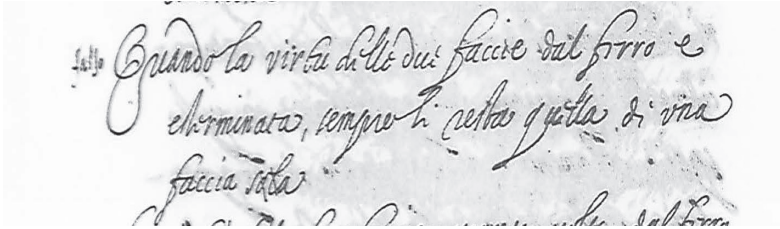 falso Quando la virtu delle due faccie dal ferro e
esterminata, sempre li resta quella di una
faccia sola
dal ferro